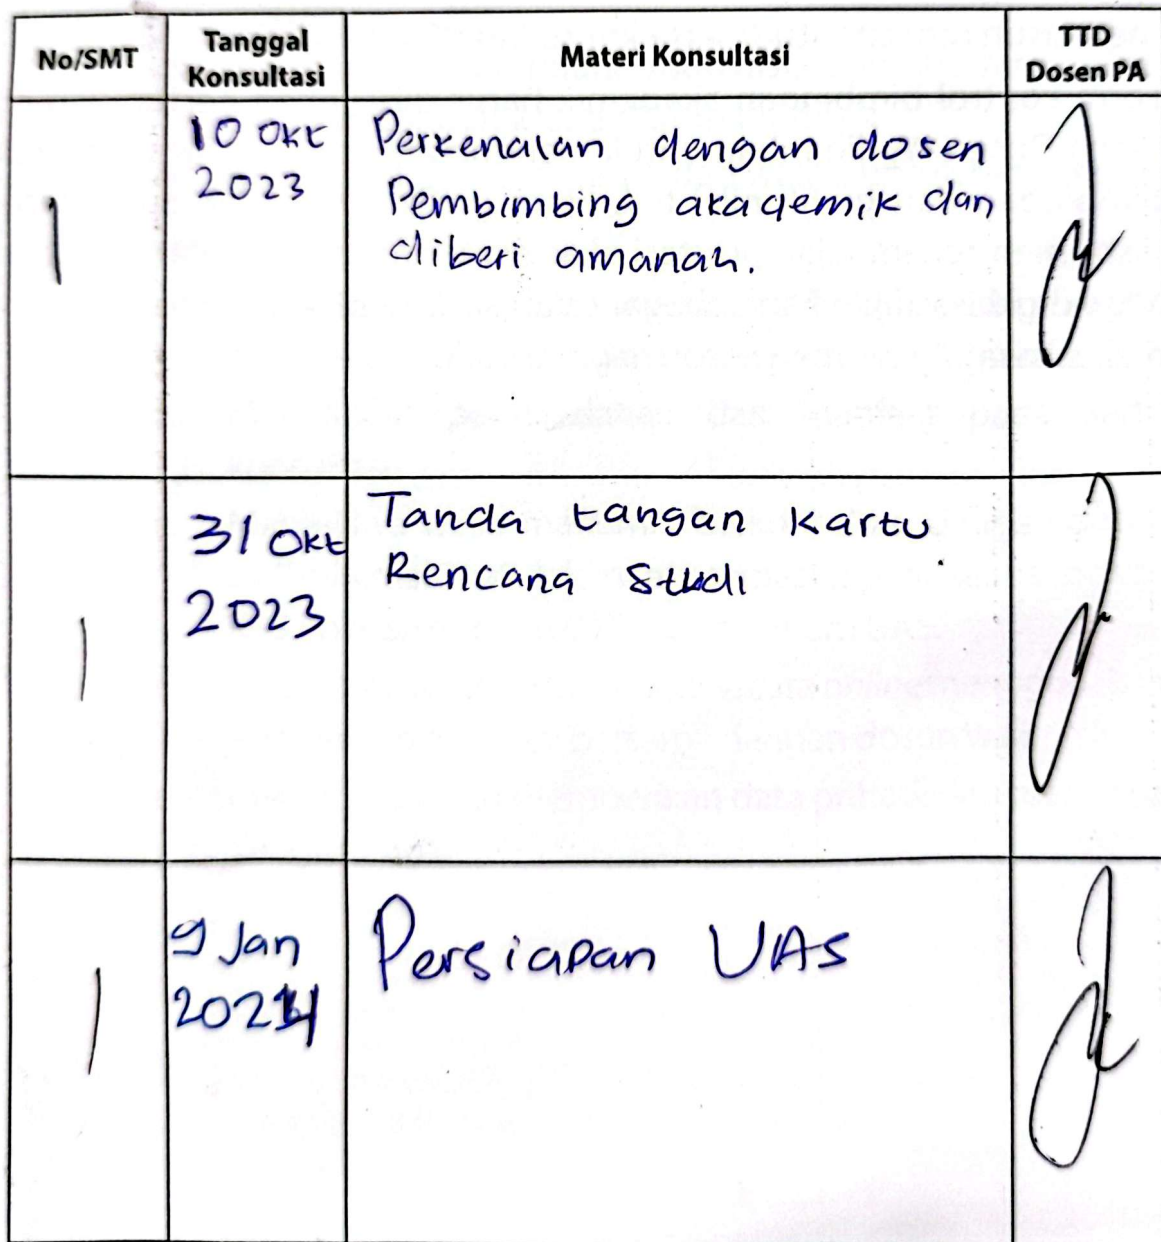 No/SMT
Tanggal
Konsultasi
Materi Konsultasi
TTD
Dosen PA
1
10 Okt
2023
Perkenalan dengan dosen
Pembimbing akademik dan
diberi amanah.
1
31 Okt
2023
Tanda tangan Kartu
Rencana Studi
1
9 Jan
2024
Persiapan UAS